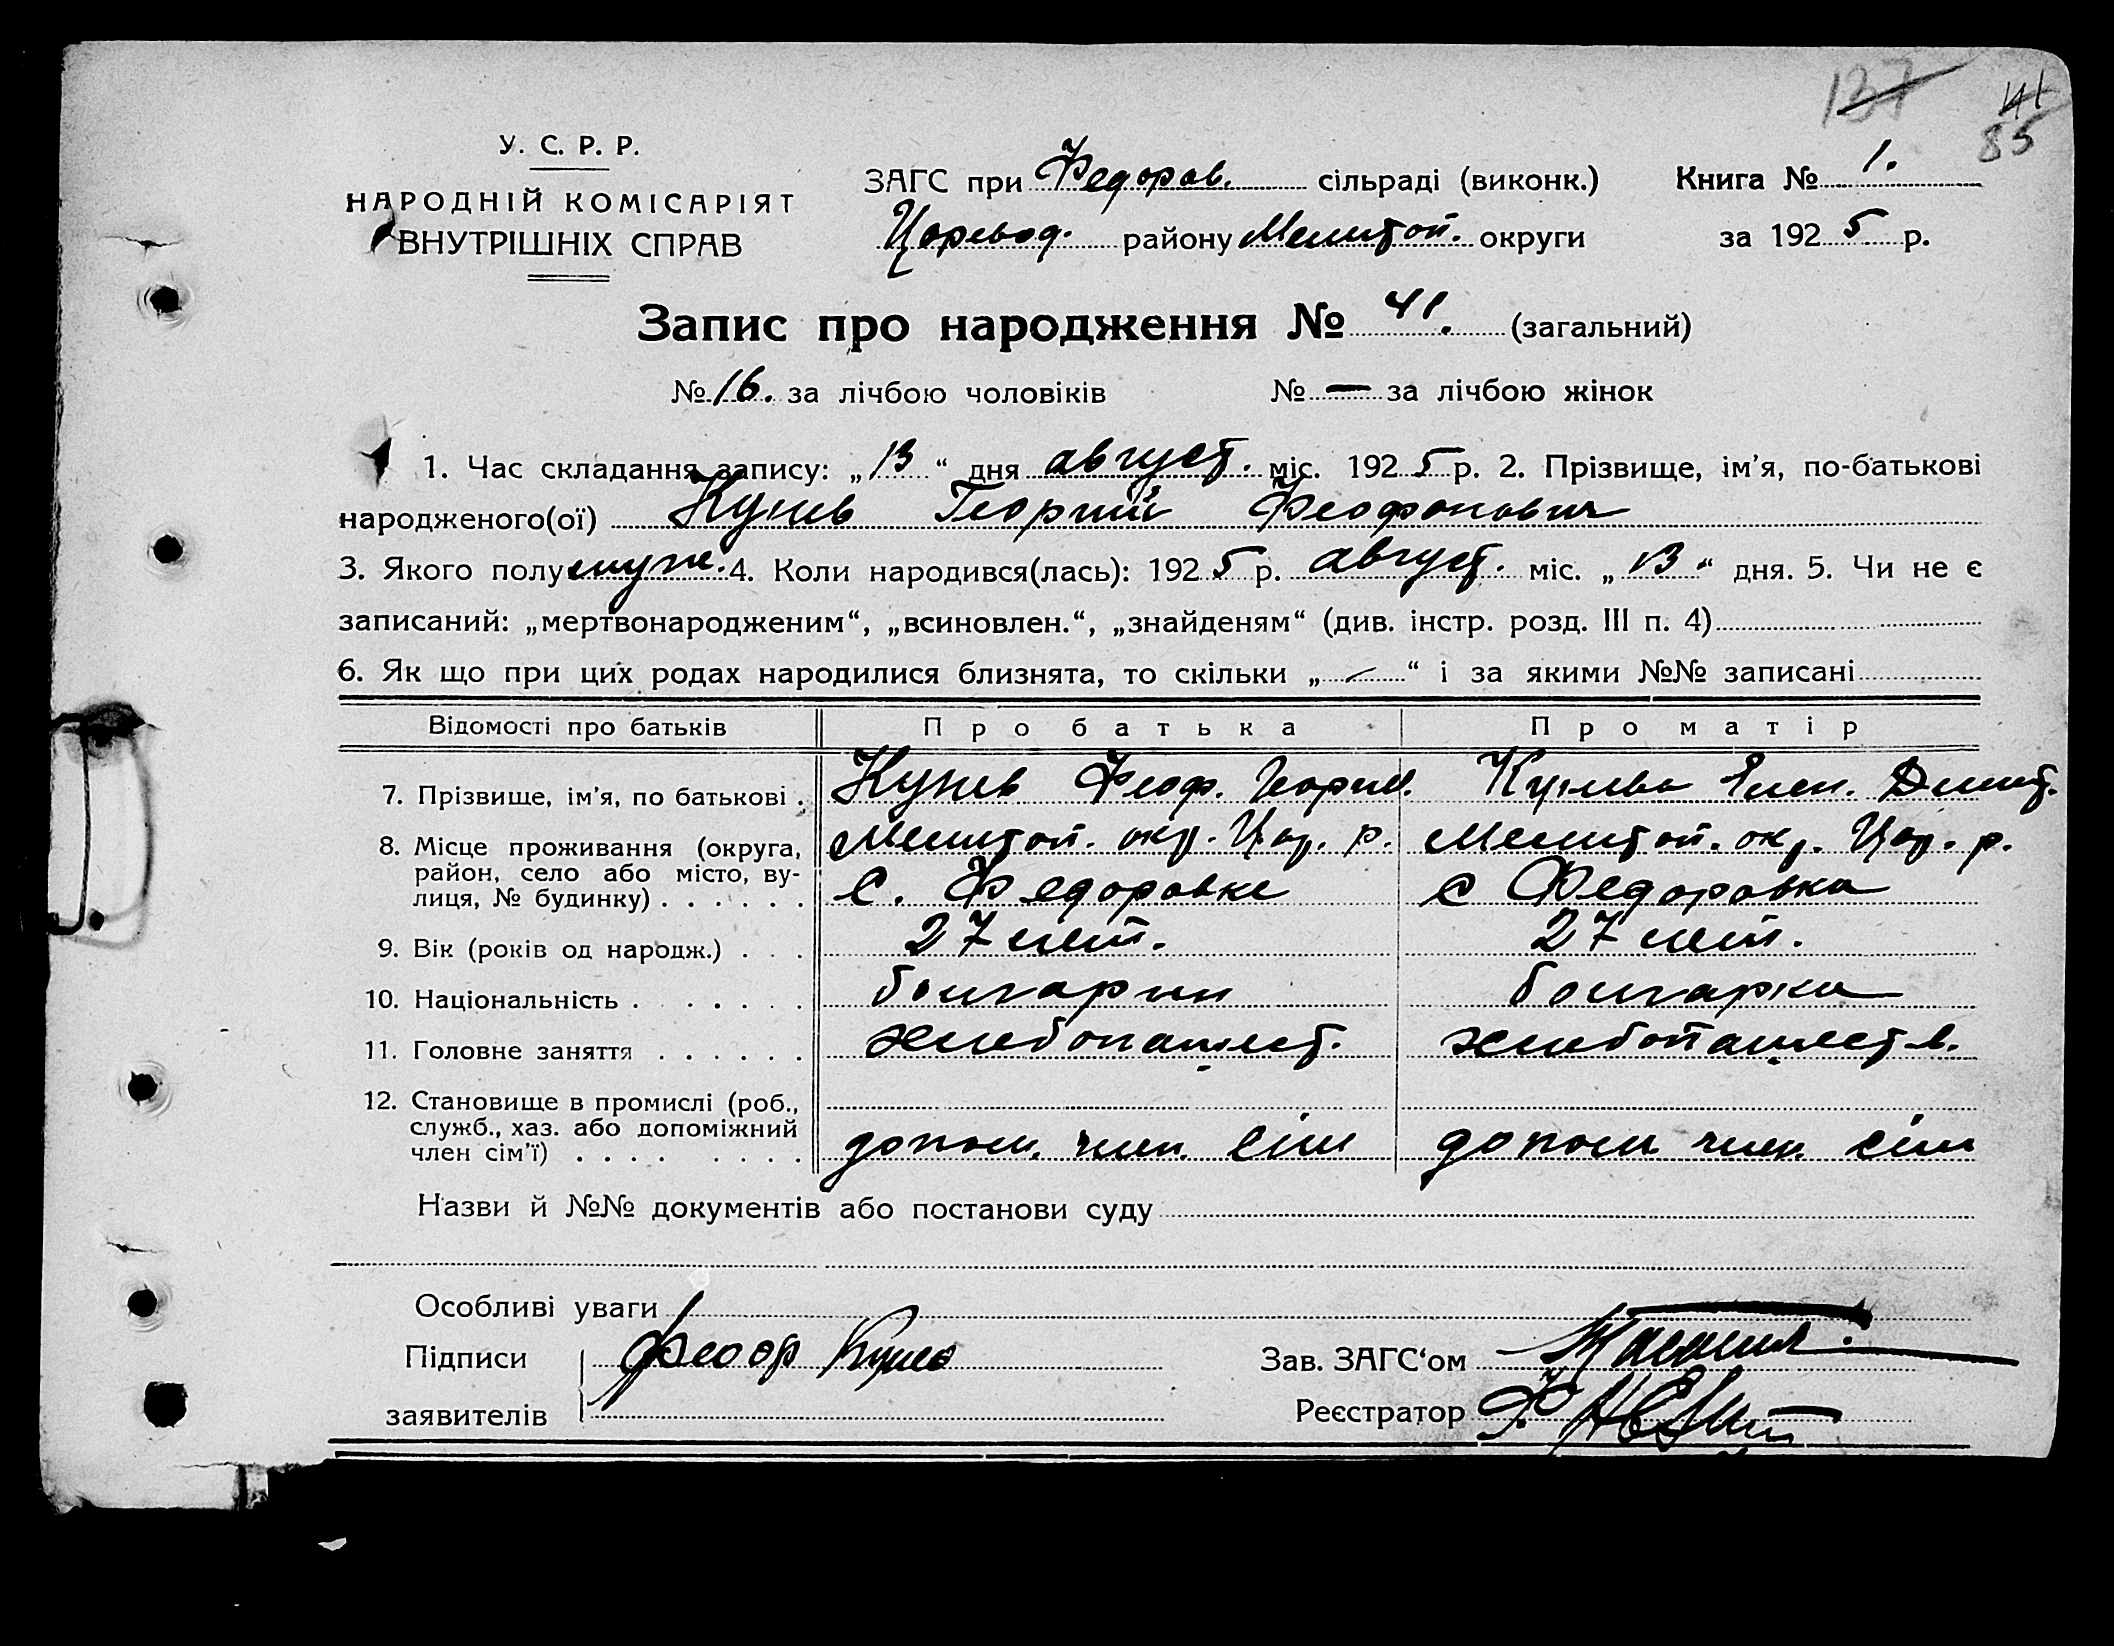 137 141
85
У. С. Р. Р.
НАРОДНІЙ КОМІСАРІЯТ
ВНУТРІШНІХ СПРАВ
ЗАГС при Федоров. сільраді (виконк.) Книга № 1.
Царевод. району Мелитоп. округи за 1925 р.
Запис про народження № 41. (загальний)
№ 16. за лічбою чоловіків № — за лічбою жінок
1. Час складання запису: „13“ дня август. міс. 1925 р. 2. Прізвище, ім'я, по-батькові
народженого(ої) Кунев Георгий Феофанович
3. Якого полу муж. 4. Коли народився(лась): 1925 р. август. міс. „13“ дня. 5. Чи не є
записаний: „мертвонародженим“, „всиновлен.“, „знайденям“ (див. інстр. розд. III п. 4)
6. Як що при цих родах народилися близнята, то скільки „—“ і за якими №№ записані
Відомості про батьків Про батька Про матір
7. Прізвище, ім'я, по батькові . Кунев Феоф. Георги. Кунева Елен. Дмит.
8. Місце проживання (округа, Мелитоп. окр. Цар. р. Мелитоп. окр. Цар. р.
район, село або місто, ву-
лиця, № будинку) . . . . . . с. Федоровке с Федоровка
9. Вік (років од народж.) . . . 27 лет. 27 лет.
10. Національність . . . . . . болгарин болгарка
11. Головне заняття . . . . . . хлебопашест. хлебопашеств.
12. Становище в промислі (роб.,
служб., хаз. або допоміжний
член сім'ї) . . . . . . . . допом. член. сім допом член. сім
Назви й №№ документів або постанови суду
Особливі уваги
Підписи Феоф Кунев Зав. ЗАГС'ом
заявителів Реєстратор